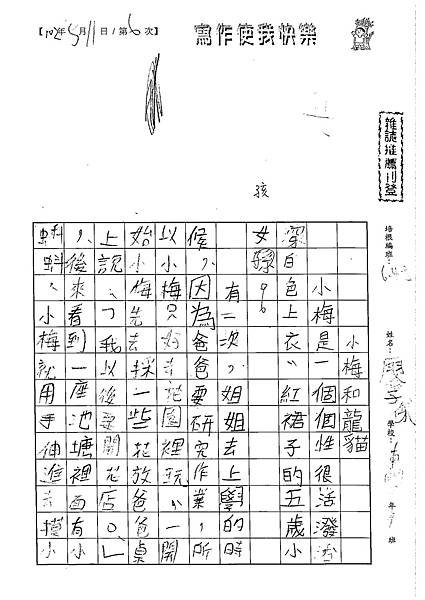 【102年5月11日/第6次】
寫作使我快樂
雜誌推薦刊登
培根編班：
姓名：
學校：
年 班
小梅和龍貓
小梅是一個個性很活潑
深白色上衣、紅裙子的五歲小
女孩。
有一次，姐姐去上學的時
候，因為爸爸要研究作業，所
以小梅只好去花園裡玩。一開
始小梅先去採一些花放爸爸桌
上說：「我以後要開花店。」
，後來看到一座池塘裡面有小
蝌蚪、小梅就用手伸進去摸小